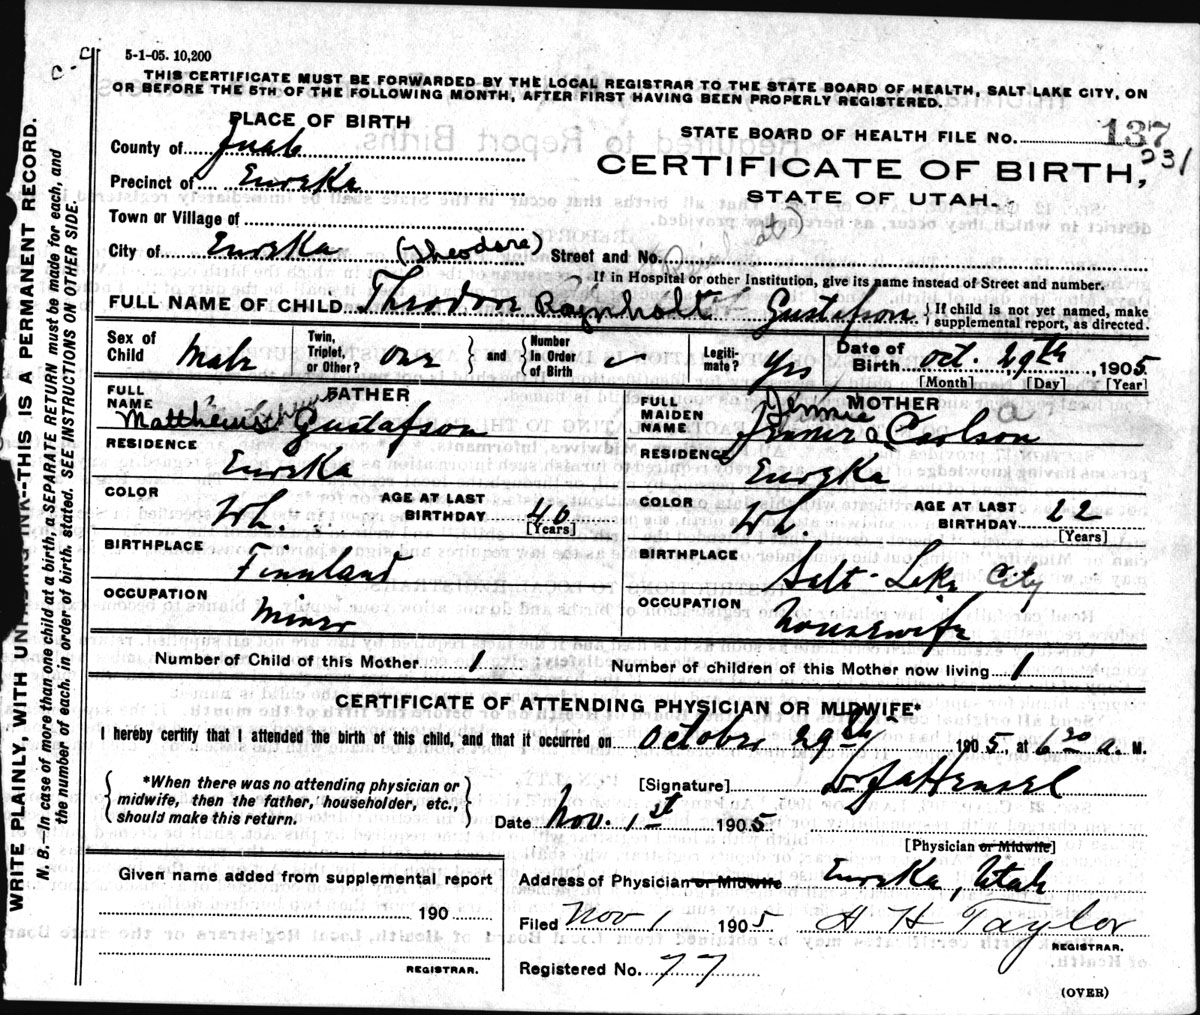 5-1-05. 10,200
C-C
THIS CERTIFICATE MUST BE FORWARDED BY THE LOCAL REGISTRAR TO THE STATE BOARD OF HEALTH, SALT LAKE CITY, ON
OR BEFORE THE 5TH OF THE FOLLOWING MONTH, AFTER FIRST HAVING BEEN PROPERLY REGISTERED.
PLACE OF BIRTH
STATE BOARD OF HEALTH FILE NO. 137
231
County of Juab
CERTIFICATE OF BIRTH,
Precinct of Eureka
STATE OF UTAH.
Town or Village of
City of Eureka (Theodore) Street and No.
If in Hospital or other Institution, give its name instead of Street and number.
FULL NAME OF CHILD Theodore Gustafson {If child is not yet named, make supplemental report, as directed.
Sex of Child Male Twin, Triplet, or Other? one } and { Number In Order of Birth – Legiti- mate? yes Date of Birth Oct. 29th, 1905
[Month] [Day] [Year]
FATHER
FULL NAME Gustafson
RESIDENCE Eureka
COLOR Wh. AGE AT LAST BIRTHDAY 40 [Years]
BIRTHPLACE Finnland
OCCUPATION Miner
MOTHER
FULL MAIDEN NAME Jennie Carlson
RESIDENCE Eureka
COLOR Wh. AGE AT LAST BIRTHDAY 22 [Years]
BIRTHPLACE Salt Lake City
OCCUPATION Housewife
Number of Child of this Mother 1 Number of children of this Mother now living 1
CERTIFICATE OF ATTENDING PHYSICIAN OR MIDWIFE*
I hereby certify that I attended the birth of this child, and that it occurred on October 29th, 1905, at 6 30 a. M.
{*When there was no attending physician or
midwife, then the father, householder, etc.,
should make this return.}
[Signature] Dr J A Hensel
Date Nov. 1st 1905
[Physician or Midwife]
Given name added from supplemental report
190
REGISTRAR.
Address of Physician or Midwife Eureka, Utah
Filed Nov 1 1905 H H Taylor
REGISTRAR.
Registered No. 77
(OVER)
WRITE PLAINLY, WITH UNFADING INK--THIS IS A PERMANENT RECORD.
N. B.—In case of more than one child at a birth, a SEPARATE RETURN must be made for each, and
the number of each, in order of birth, stated. SEE INSTRUCTIONS ON OTHER SIDE.